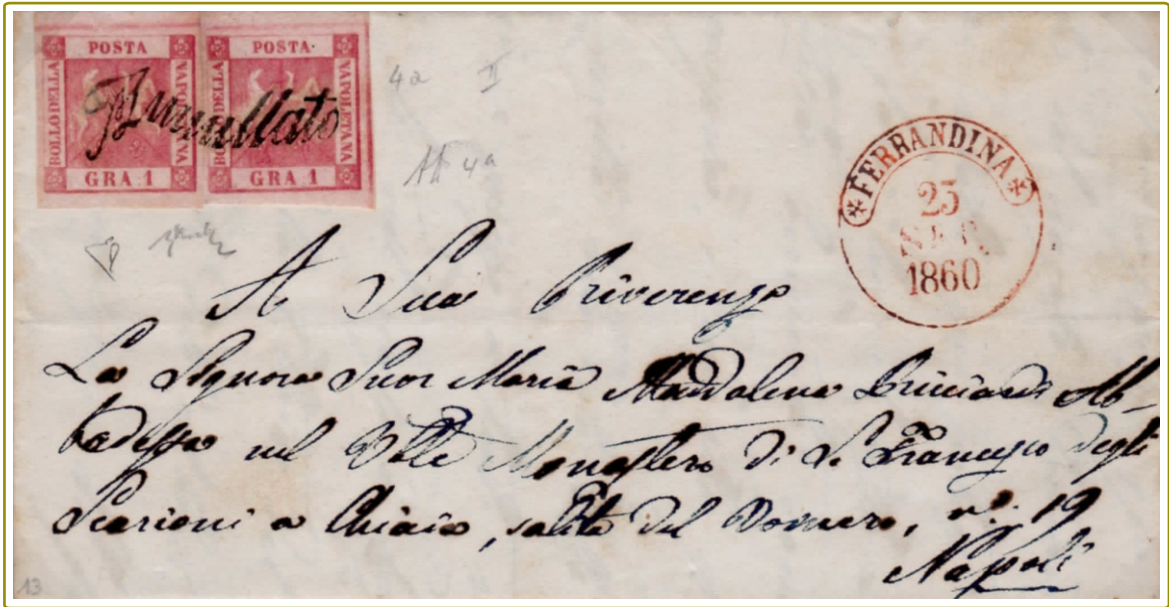 POSTA
BOLLO DELLA
NAPOLETANA
GRA 1
POSTA
BOLLO DELLA
NAPOLETANA
GRA 1
Annullato
4a II
4a
FERRANDINA
23
SET.
1860
A Sua Riverenza
La Signora Suor Maria Maddalena Ab-
badessa nel Monastero di S. Francesco degli
Scarioni a Chiaia, salita del Vomero, n°. 19
Napoli
13